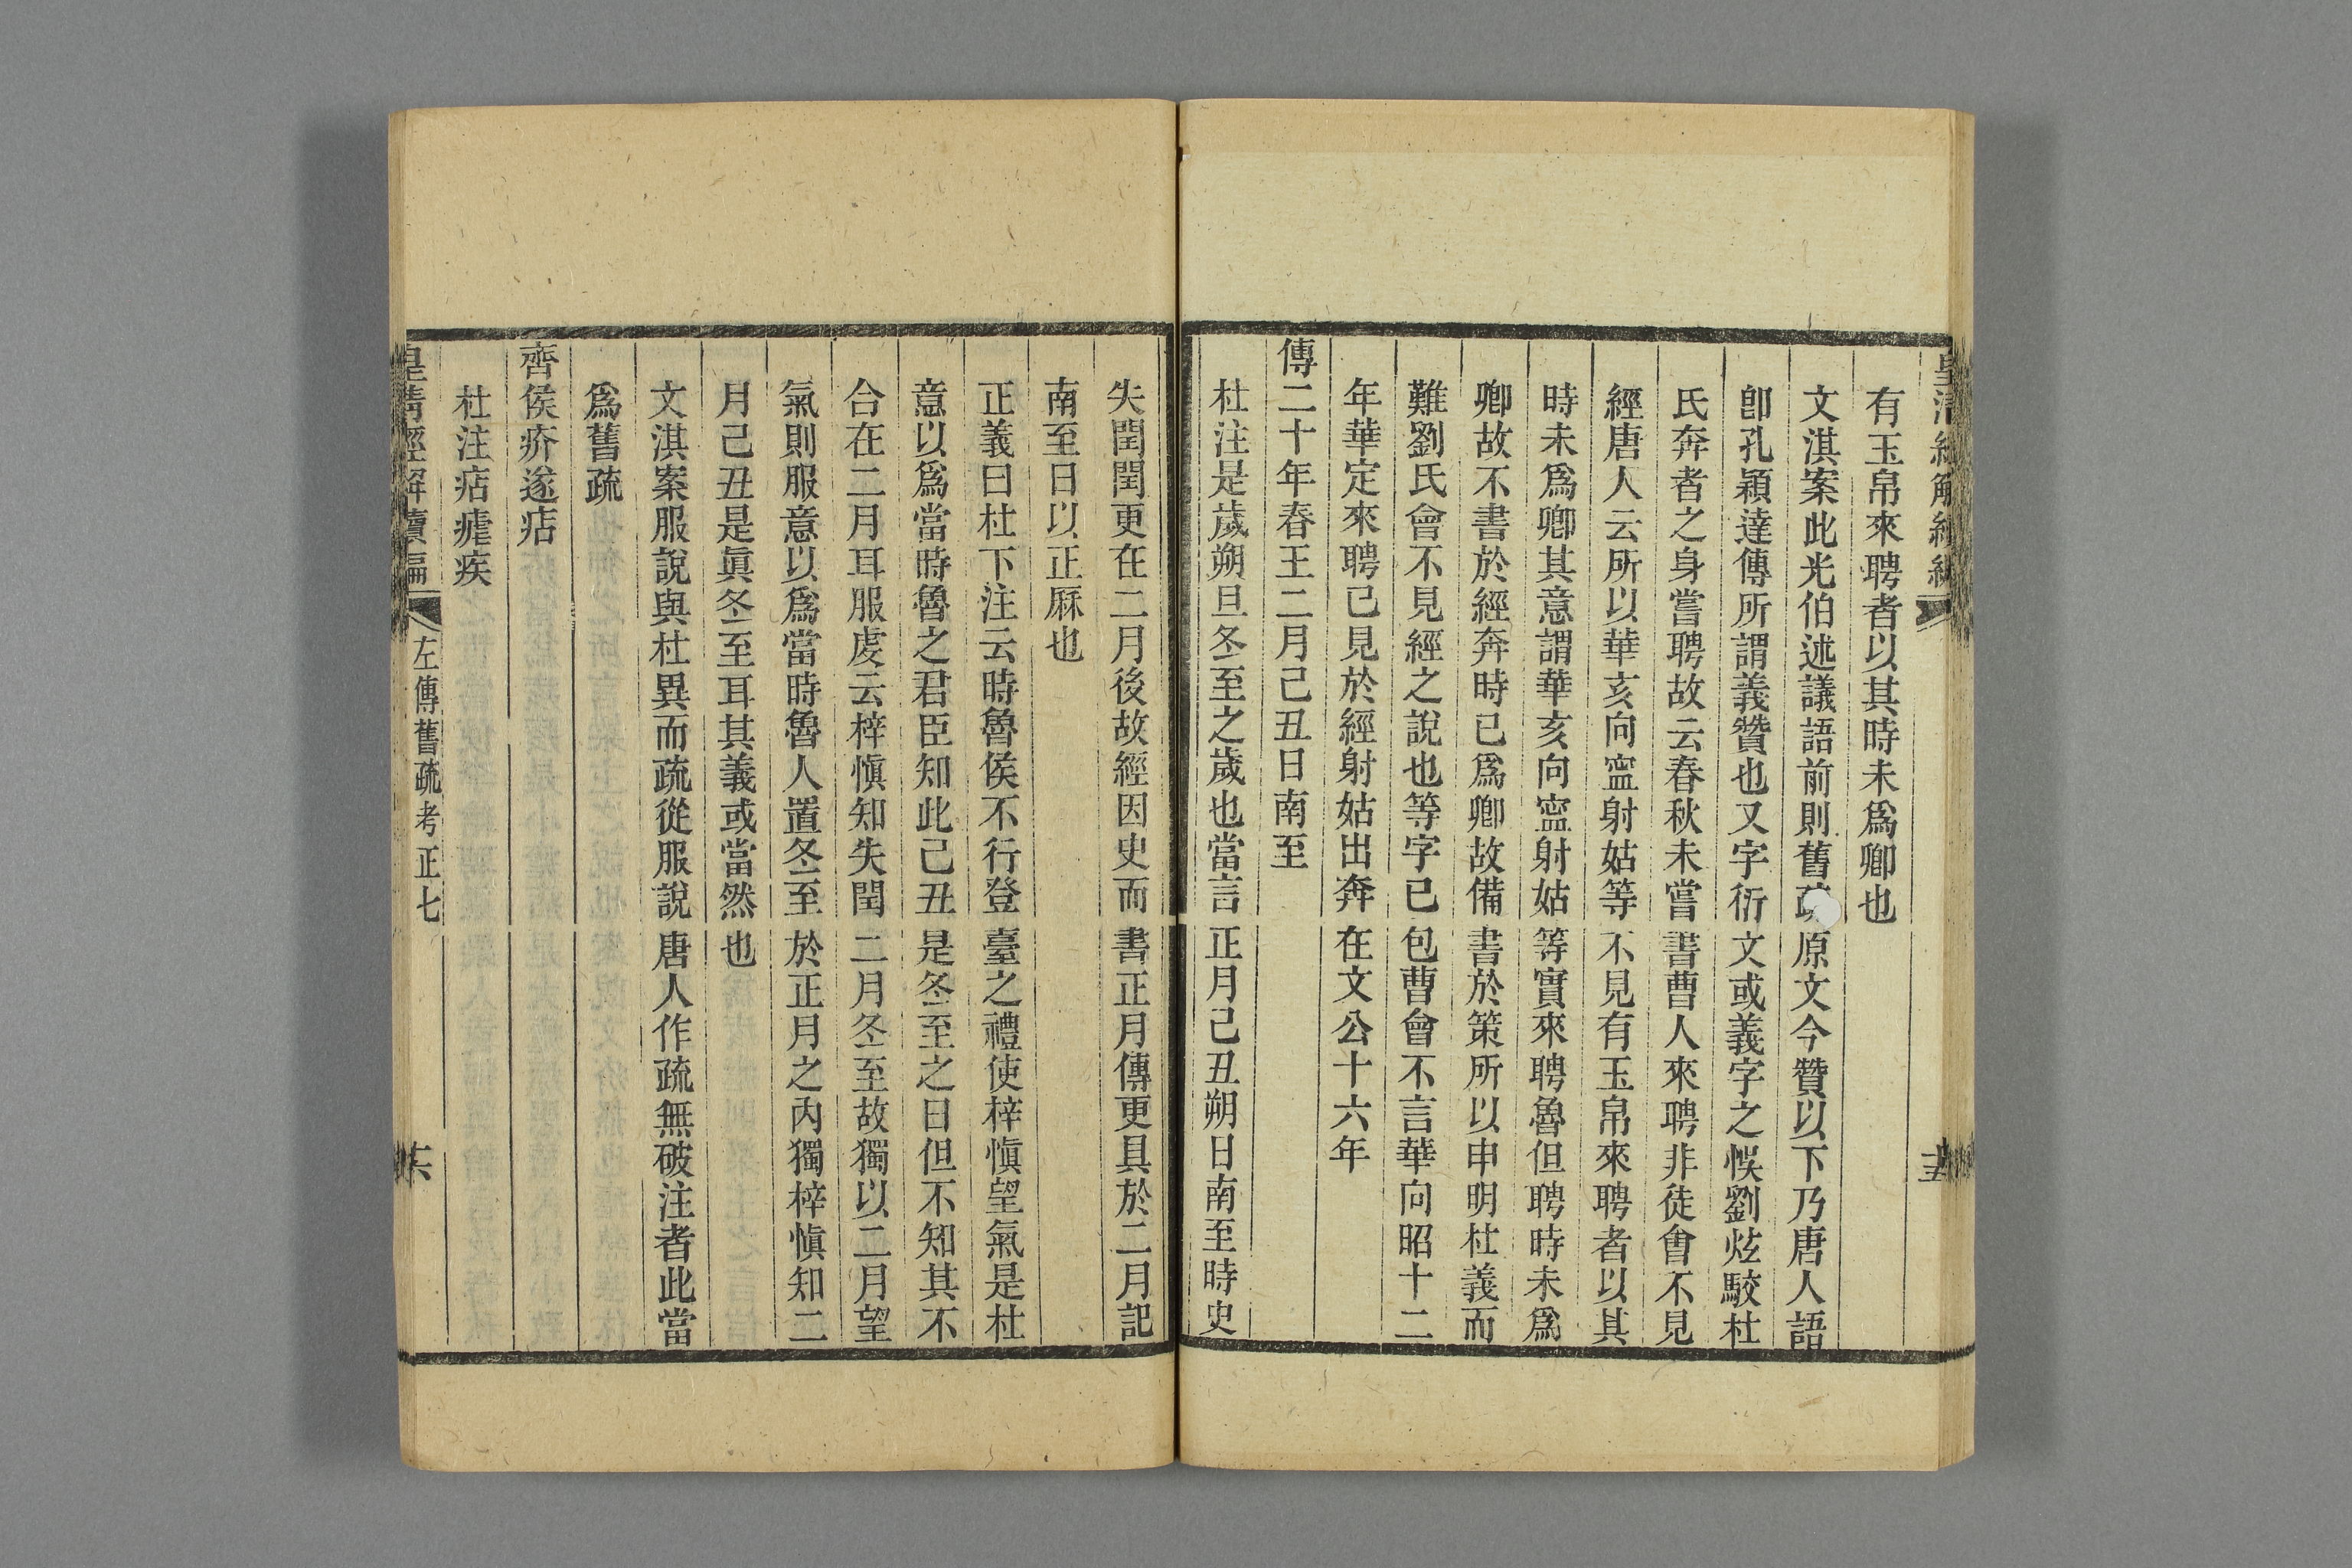 皇清經解續編
有玉帛來聘者以其時未爲卿也
文淇案此光伯述議語前則舊疏原文今贊以下乃唐人語
卽孔穎達傳所謂義贊也又字衍文或義字之悞劉炫駮杜
氏奔者之身嘗聘故云春秋未嘗書曹人來聘非徒會不見
經唐人云所以華亥向寍射姑等不見有玉帛來聘者以其
時未爲卿其意謂華亥向寍射姑等實來聘魯但聘時未爲
卿故不書於經奔時已爲卿故備書於策所以申明杜義而
難劉氏會不見經之說也等字已包曹會不言華向昭十二
年華定來聘已見於經射姑出奔在文公十六年
傳二十年春王二月己丑日南至
杜注是歲朔旦冬至之歲也當言正月己丑朔日南至時史
失閏閏更在二月後故經因史而書正月傳更具於二月記
南至日以正厤也
正義曰杜下注云時魯侯不行登臺之禮使梓愼望氣是杜
意以爲當時魯之君臣知此己丑是冬至之日但不知其不
合在二月耳服虔云梓愼知失閏二月冬至故獨以二月望
氣則服意以爲當時魯人置冬至於正月之內獨梓愼知二
月己丑是眞冬至耳其義或當然也
文淇案服說與杜異而疏從服說唐人作疏無破注者此當
爲舊疏
齊侯疥遂痁
杜注痁瘧疾
皇清經解續編
左傳舊疏考正七